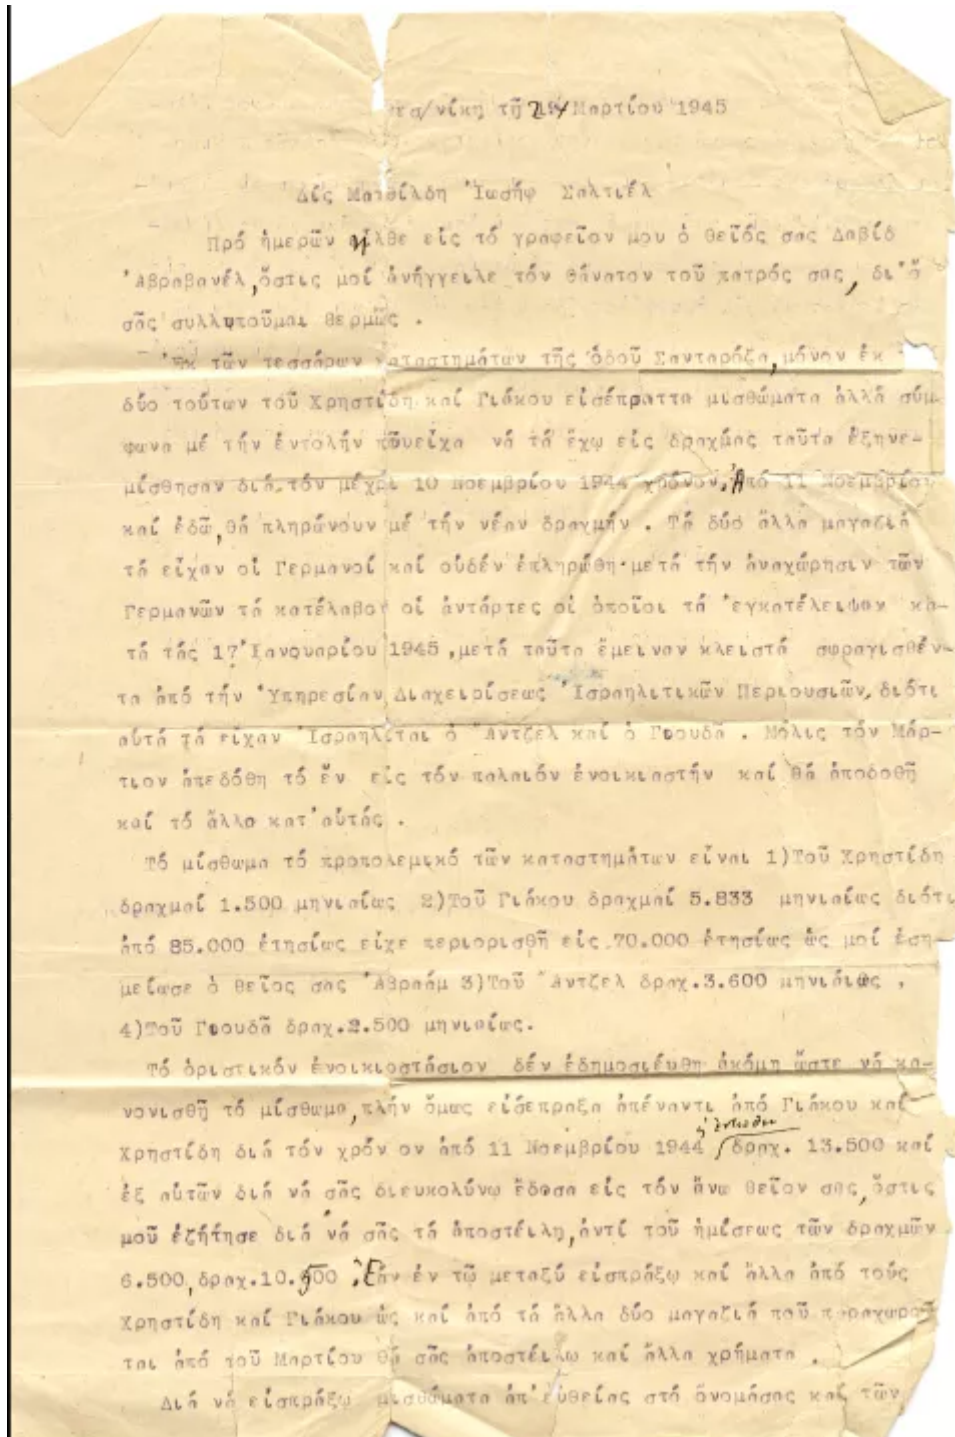 σσ/νίκη τῇ 29 Μαρτίου 1945
Δίς Ματθίλδη Ἰωσήφ Σαλτιέλ
Πρό ἡμερῶν ἦλθε εἰς τό γραφεῖον μου ὁ θεῖός σας Δαβίδ
Ἀβραβανέλ, ὅστις μοί ἀνήγγειλε τόν θάνατον τοῦ πατρός σας, δι'ὅ
σᾶς συλλυποῦμαι θερμῶς .
Ἐκ τῶν τεσσάρων καταστημάτων τῆς ὁδοῦ Σανταρόζα, μόνον ἐκ
δύο τούτων τοῦ Χρηστίδη καί Γιάκου εἰσέπραττα μισθώματα ἀλλά σύμ-
φωνα μέ τήν ἐντολήν πουεἶχα νά τά ἔχῳ εἰς δραχμάς ταῦτα ἐξηνε-
μίσθησαν διά τόν μέχρι 10 Νοεμβρίου 1944 χρόνον. Ἀπό 11 Νοεμβρίου
καί ἐδῶ, θά πληρώνουν μέ τήν νέαν δραχμήν . Τά δύο ἄλλα μαγαζιά
τά εἶχαν οἱ Γερμανοί καί οὐδέν ἐπληρώθη·μετά τήν ἀναχώρησιν τῶν
Γερμανῶν τά κατέλαβον οἱ ἀντάρτες οἱ ὁποῖοι τά ἐγκατέλειψαν κα-
τά τάς 17 Ἰανουαρίου 1945 ,μετά ταῦτα ἔμειναν κλειστά σφραγισθέν-
τα ἀπό τήν Ὑπηρεσίαν Διαχειρίσεως Ἰσραηλιτικῶν Περιουσιῶν, διότι
αὐτά τά εἶχαν Ἰσραηλῖται ὁ Ἄντζελ καί ὁ Γεουδᾶ . Μόλις τόν Μάρ-
τιον ἀπεδόθη τό ἕν εἰς τόν παλαιόν ἐνοικιαστήν καί θά ἀποδοθῇ
καί τό ἄλλο κατ'αὐτάς .
Τό μίσθωμα τό προπολεμικό τῶν καταστημάτων εἶναι 1)Τοῦ Χρηστίδη
δραχμαί 1.500 μηνιαίως 2)Τοῦ Γιάκου δραχμαί 5.833 μηνιαίως διότι
ἀπό 85.000 ἐτησίως εἶχε περιορισθῆ εἰς 70.000 ἐτησίως ὡς μοί ἐση-
μείωσε ὁ θεῖος σας Ἀβραάμ 3)Τοῦ Ἄντζελ δραχ.3.600 μηνιαίως .
4)Τοῦ Γεουδᾶ δραχ.2.500 μηνιαίως.
Τό ὁριστικόν ἐνοικιοστάσιον δέν ἐδημοσιεύθη ἀκόμη ὥστε νά κα-
νονισθῇ τό μίσθωμα, πλήν ὅμως εἰσεπραξα ἀπέναντι ἀπό Γιάκου καί
Χρηστίδη διά τόν χρόν ον ἀπό 11 Νοεμβρίου 1944 δραχ. 13.500 καί
ἐξ αὐτῶν διά νά σᾶς διευκολύνω ἔδωσα εἰς τόν ἄνω θεῖον σας, ὅστις
μοῦ ἐζήτησε διά νά σᾶς τά ἀποστείλῃ, ἀντί τοῦ ἡμίσεως τῶν δραχμῶν
6.500, δραχ.10.500 . Ἐάν ἐν τῷ μεταξύ εἰσπράξω καί ἄλλα ἀπό τούς
Χρηστίδη καί Γιάκου ὡς καί ἀπό τά ἄλλα δύο μαγαζιά πού παραχωροῦ
ται ἀπό τοῦ Μαρτίου θά σᾶς ἀποστείλω καί ἄλλα χρήματα .
Διά νά εἰσπράξω μισθώματα ἀπ'εὐθείας στό ὄνομάσας καί τῶν